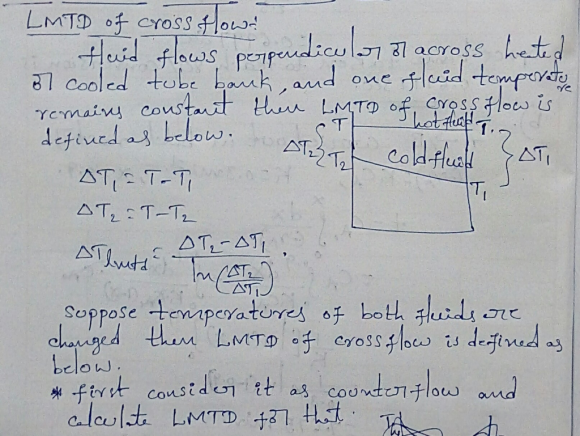 LMTD of cross flow:
fluid flows perpendicular or across heted
or cooled tube bank, and one fluid temperature
remains constant then LMTD of cross flow is
defined as below.
T hot fluid T.
ΔT2 { T2 cold fluid } ΔT1
T1
ΔT1 = T-T1
ΔT2 = T-T2
ΔTlmtd = ΔT2-ΔT1 / ln(ΔT2/ΔT1) .
Suppose temperatures of both fluids are
changed then LMTD of cross flow is defined as
below.
* first consider it as counter flow and
calculate LMTD for that.